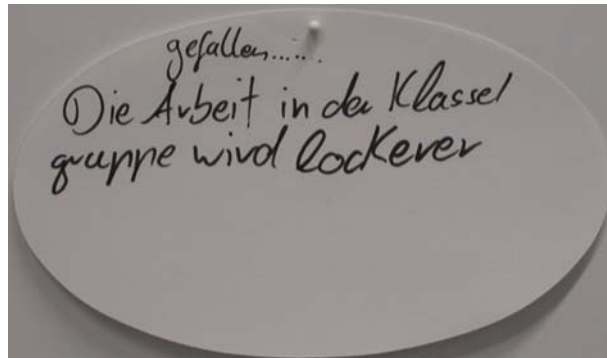 gefallen......
Die Arbeit in der Klasse/
gruppe wird lockerer